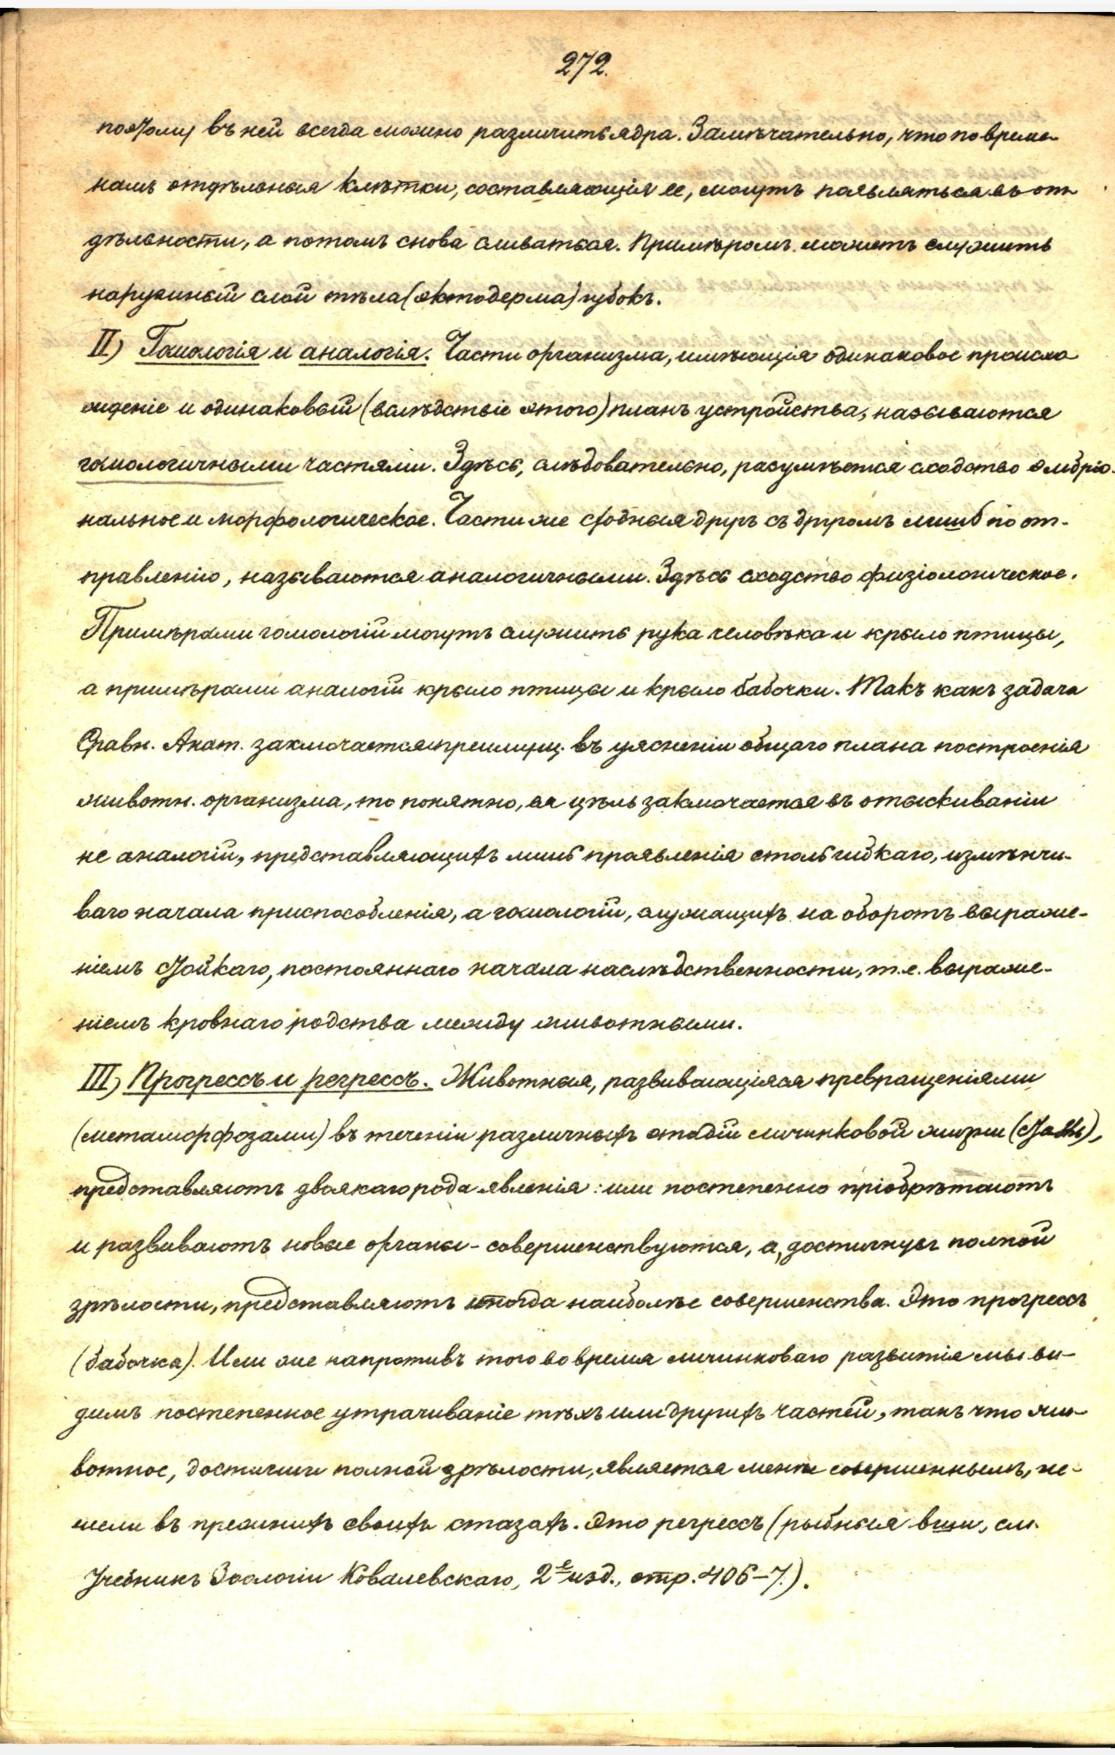 272.
поэтому въ ней всегда можно различить ядра. Замѣчательно, что по време-
намъ отдѣльныя клѣтки, составляющія ее, могутъ появляться въ от-
дѣльности, а потомъ снова сливаться. Примѣромъ можетъ служить
наружный слой тѣла (эктодерма) губокъ.
II) Гомологія и аналогія. Части организма, имѣющія одинаковое происхо
жденіе и одинаковый (вслѣдствіе этого) планъ устройства, называются
гомологичными частями. Здѣсь, слѣдовательно, разумѣется сходство эмбріо-
нальное и морфологическое. Части же сходныя другъ съ другомъ лишь по от-
правленію, называются аналогичными. Здѣсь сходство физіологическое.
Примѣрами гомологій могутъ служить рука человѣка и крыло птицы,
а примѣрами аналогій крыло птицы и крыло бабочки. Такъ какъ задача
Сравн. Анат. заключается преимущ. въ уясненіи общаго плана построенія
животн. организма, то понятно, ея цѣль заключается въ отыскиваніи
не аналогій, представляющихъ лишь проявленія столь гибкаго, измѣнчи-
ваго начала приспособленія, а гомологій, служащихъ на оборотъ выраже-
ніемъ стойкаго, постояннаго начала наслѣдственности, т.е. выраже-
ніемъ кровнаго родства между животными.
III) Прогрессъ и регрессъ. Животныя, развивающіяся превращеніями
(метаморфозами) въ теченіи различныхъ стадій личинковой жизни
представляютъ двоякаго рода явленія: или постепенно пріобрѣтаютъ
и развиваютъ новые органы - совершенствуются, а, достигнувъ полной
зрѣлости, представляютъ иногда наиболѣе совершенства. Это прогрессъ
(бабочка). Или же напротивъ того во время личинковаго развитія мы ви-
димъ постепенное утрачиваніе тѣхъ или другихъ частей, такъ что жи-
вотное, достигши полной зрѣлости, является менѣе совершеннымъ, не-
жели въ прежнихъ своихъ стазахъ. Это регрессъ (рыбныя вши, см.
Учебникъ Зоологіи Ковалевскаго, 2е изд., стр. 406-7.).